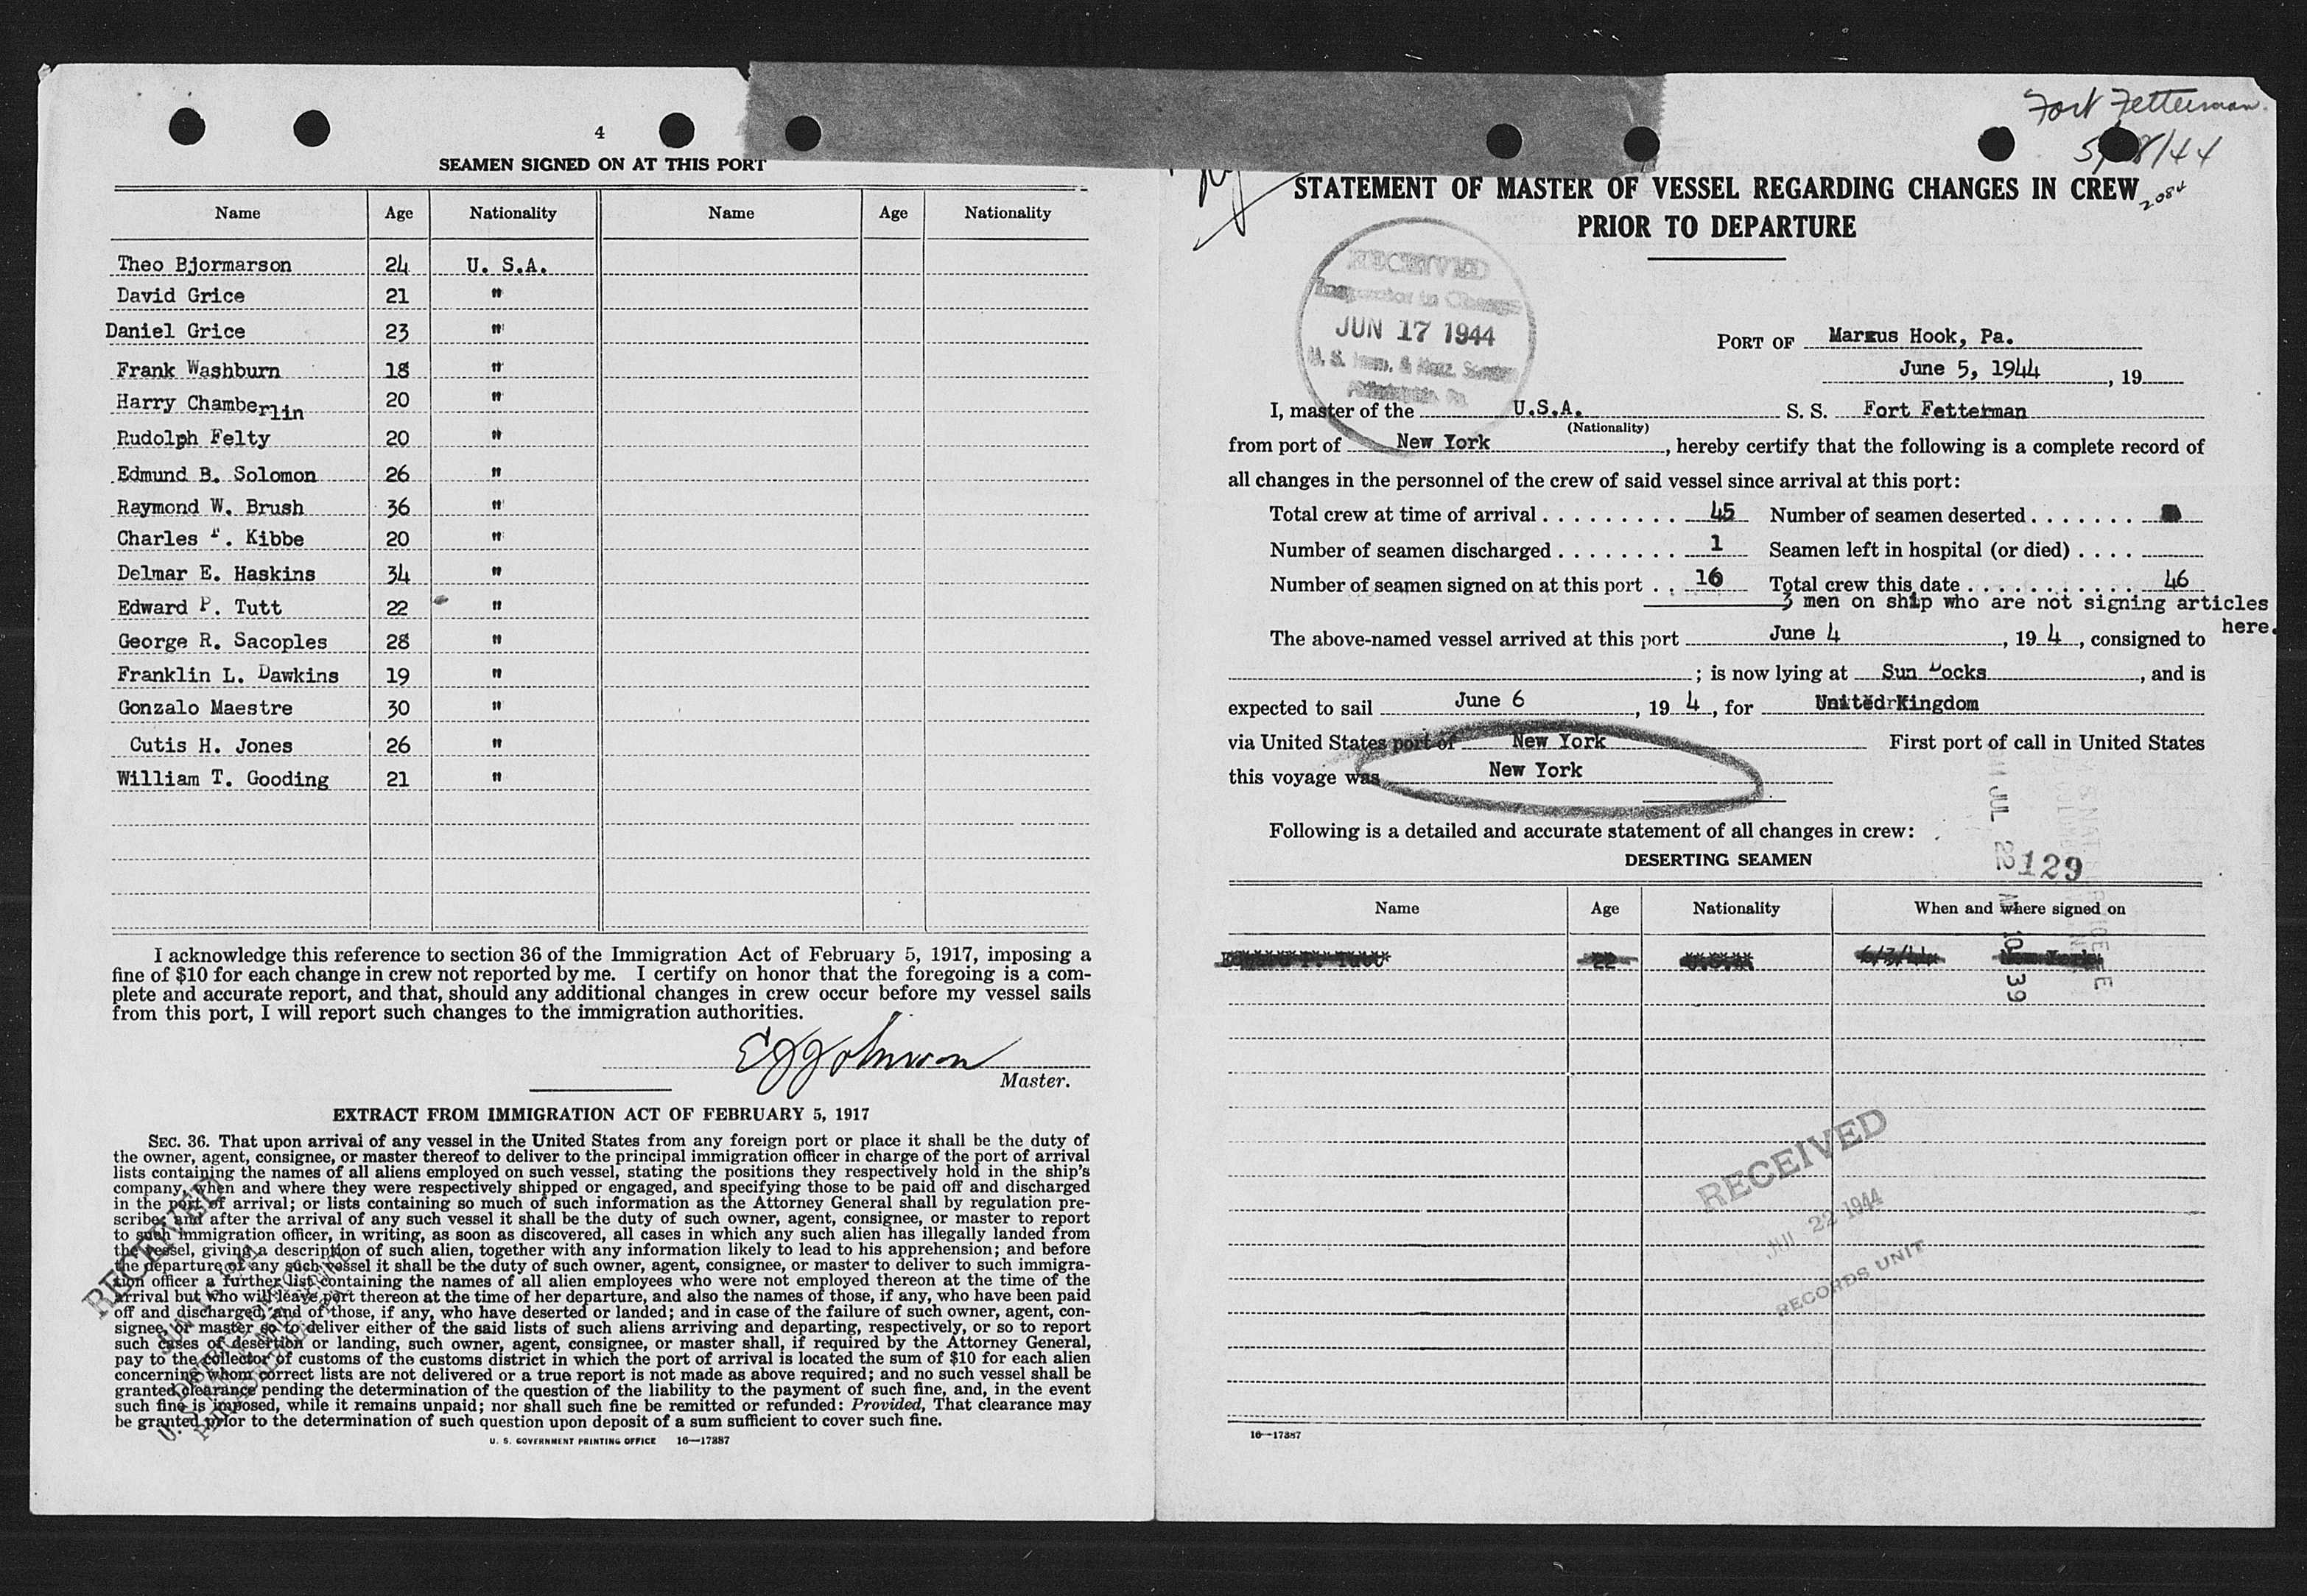 4
SEAMEN SIGNED ON AT THIS PORT
Name Age Nationality Name Age Nationality
Theo Bjormarson 24 U. S.A.
David Grice 21 "
Daniel Grice 23 "
Frank Washburn 18 "
Harry Chamberlin 20 "
Rudolph Felty 20 "
Edmund B. Solomon 26 "
Raymond W. Brush 36 "
Charles F. Kibbe 20 "
Delmar E. Haskins 34 "
Edward P. Tutt 22 "
George R. Sacoples 28 "
Franklin L. Dawkins 19 "
Gonzalo Maestre 30 "
Cutis H. Jones 26 "
William T. Gooding 21 "
I acknowledge this reference to section 36 of the Immigration Act of February 5, 1917, imposing a
fine of $10 for each change in crew not reported by me. I certify on honor that the foregoing is a com-
plete and accurate report, and that, should any additional changes in crew occur before my vessel sails
from this port, I will report such changes to the immigration authorities.
E J Johnson
Master.
EXTRACT FROM IMMIGRATION ACT OF FEBRUARY 5, 1917
SEC. 36. That upon arrival of any vessel in the United States from any foreign port or place it shall be the duty of
the owner, agent, consignee, or master thereof to deliver to the principal immigration officer in charge of the port of arrival
lists containing the names of all aliens employed on such vessel, stating the positions they respectively hold in the ship's
company, when and where they were respectively shipped or engaged, and specifying those to be paid off and discharged
in the port of arrival; or lists containing so much of such information as the Attorney General shall by regulation pre-
scribe; and after the arrival of any such vessel it shall be the duty of such owner, agent, consignee, or master to report
to such immigration officer, in writing, as soon as discovered, all cases in which any such alien has illegally landed from
the vessel, giving a description of such alien, together with any information likely to lead to his apprehension; and before
the departure of any such vessel it shall be the duty of such owner, agent, consignee, or master to deliver to such immigra-
tion officer a further list containing the names of all alien employees who were not employed thereon at the time of the
arrival but who will leave port thereon at the time of her departure, and also the names of those, if any, who have been paid
off and discharged, and of those, if any, who have deserted or landed; and in case of the failure of such owner, agent, con-
signee, or master so to deliver either of the said lists of such aliens arriving and departing, respectively, or so to report
such cases of desertion or landing, such owner, agent, consignee, or master shall, if required by the Attorney General,
pay to the collector of customs of the customs district in which the port of arrival is located the sum of $10 for each alien
concerning whom correct lists are not delivered or a true report is not made as above required; and no such vessel shall be
granted clearance pending the determination of the question of the liability to the payment of such fine, and, in the event
such fine is imposed, while it remains unpaid; nor shall such fine be remitted or refunded: Provided, That clearance may
be granted prior to the determination of such question upon deposit of a sum sufficient to cover such fine.
U. S. GOVERNMENT PRINTING OFFICE 16—17387
RECEIVED
Fort Fetterman.
2084
STATEMENT OF MASTER OF VESSEL REGARDING CHANGES IN CREW
PRIOR TO DEPARTURE
RECEIVED
Inspector in Charge
JUN 17 1944
U. S. Imm. & Natz. Service
Philadelphia, Pa.
PORT OF Marcus Hook, Pa.
June 5, 1944, 19
I, master of the U.S.A. S. S. Fort Fetterman
(Nationality)
from port of New York, hereby certify that the following is a complete record of
all changes in the personnel of the crew of said vessel since arrival at this port:
Total crew at time of arrival 45 Number of seamen deserted
Number of seamen discharged 1 Seamen left in hospital (or died)
Number of seamen signed on at this port 16 Total crew this date 46
3 men on ship who are not signing articles
here.
The above-named vessel arrived at this port June 4, 19 4, consigned to
; is now lying at Sun Docks, and is
expected to sail June 6, 19 4, for United Kingdom
via United States port of New York First port of call in United States
this voyage was New York
Following is a detailed and accurate statement of all changes in crew:
DESERTING SEAMEN
129
Name Age Nationality When and where signed on
Edward P. Tutt 22 U.S.A. 6/3/44 New York
JUL 22 10 39
RECEIVED
JUL 22 1944
RECORDS UNIT
16—17387